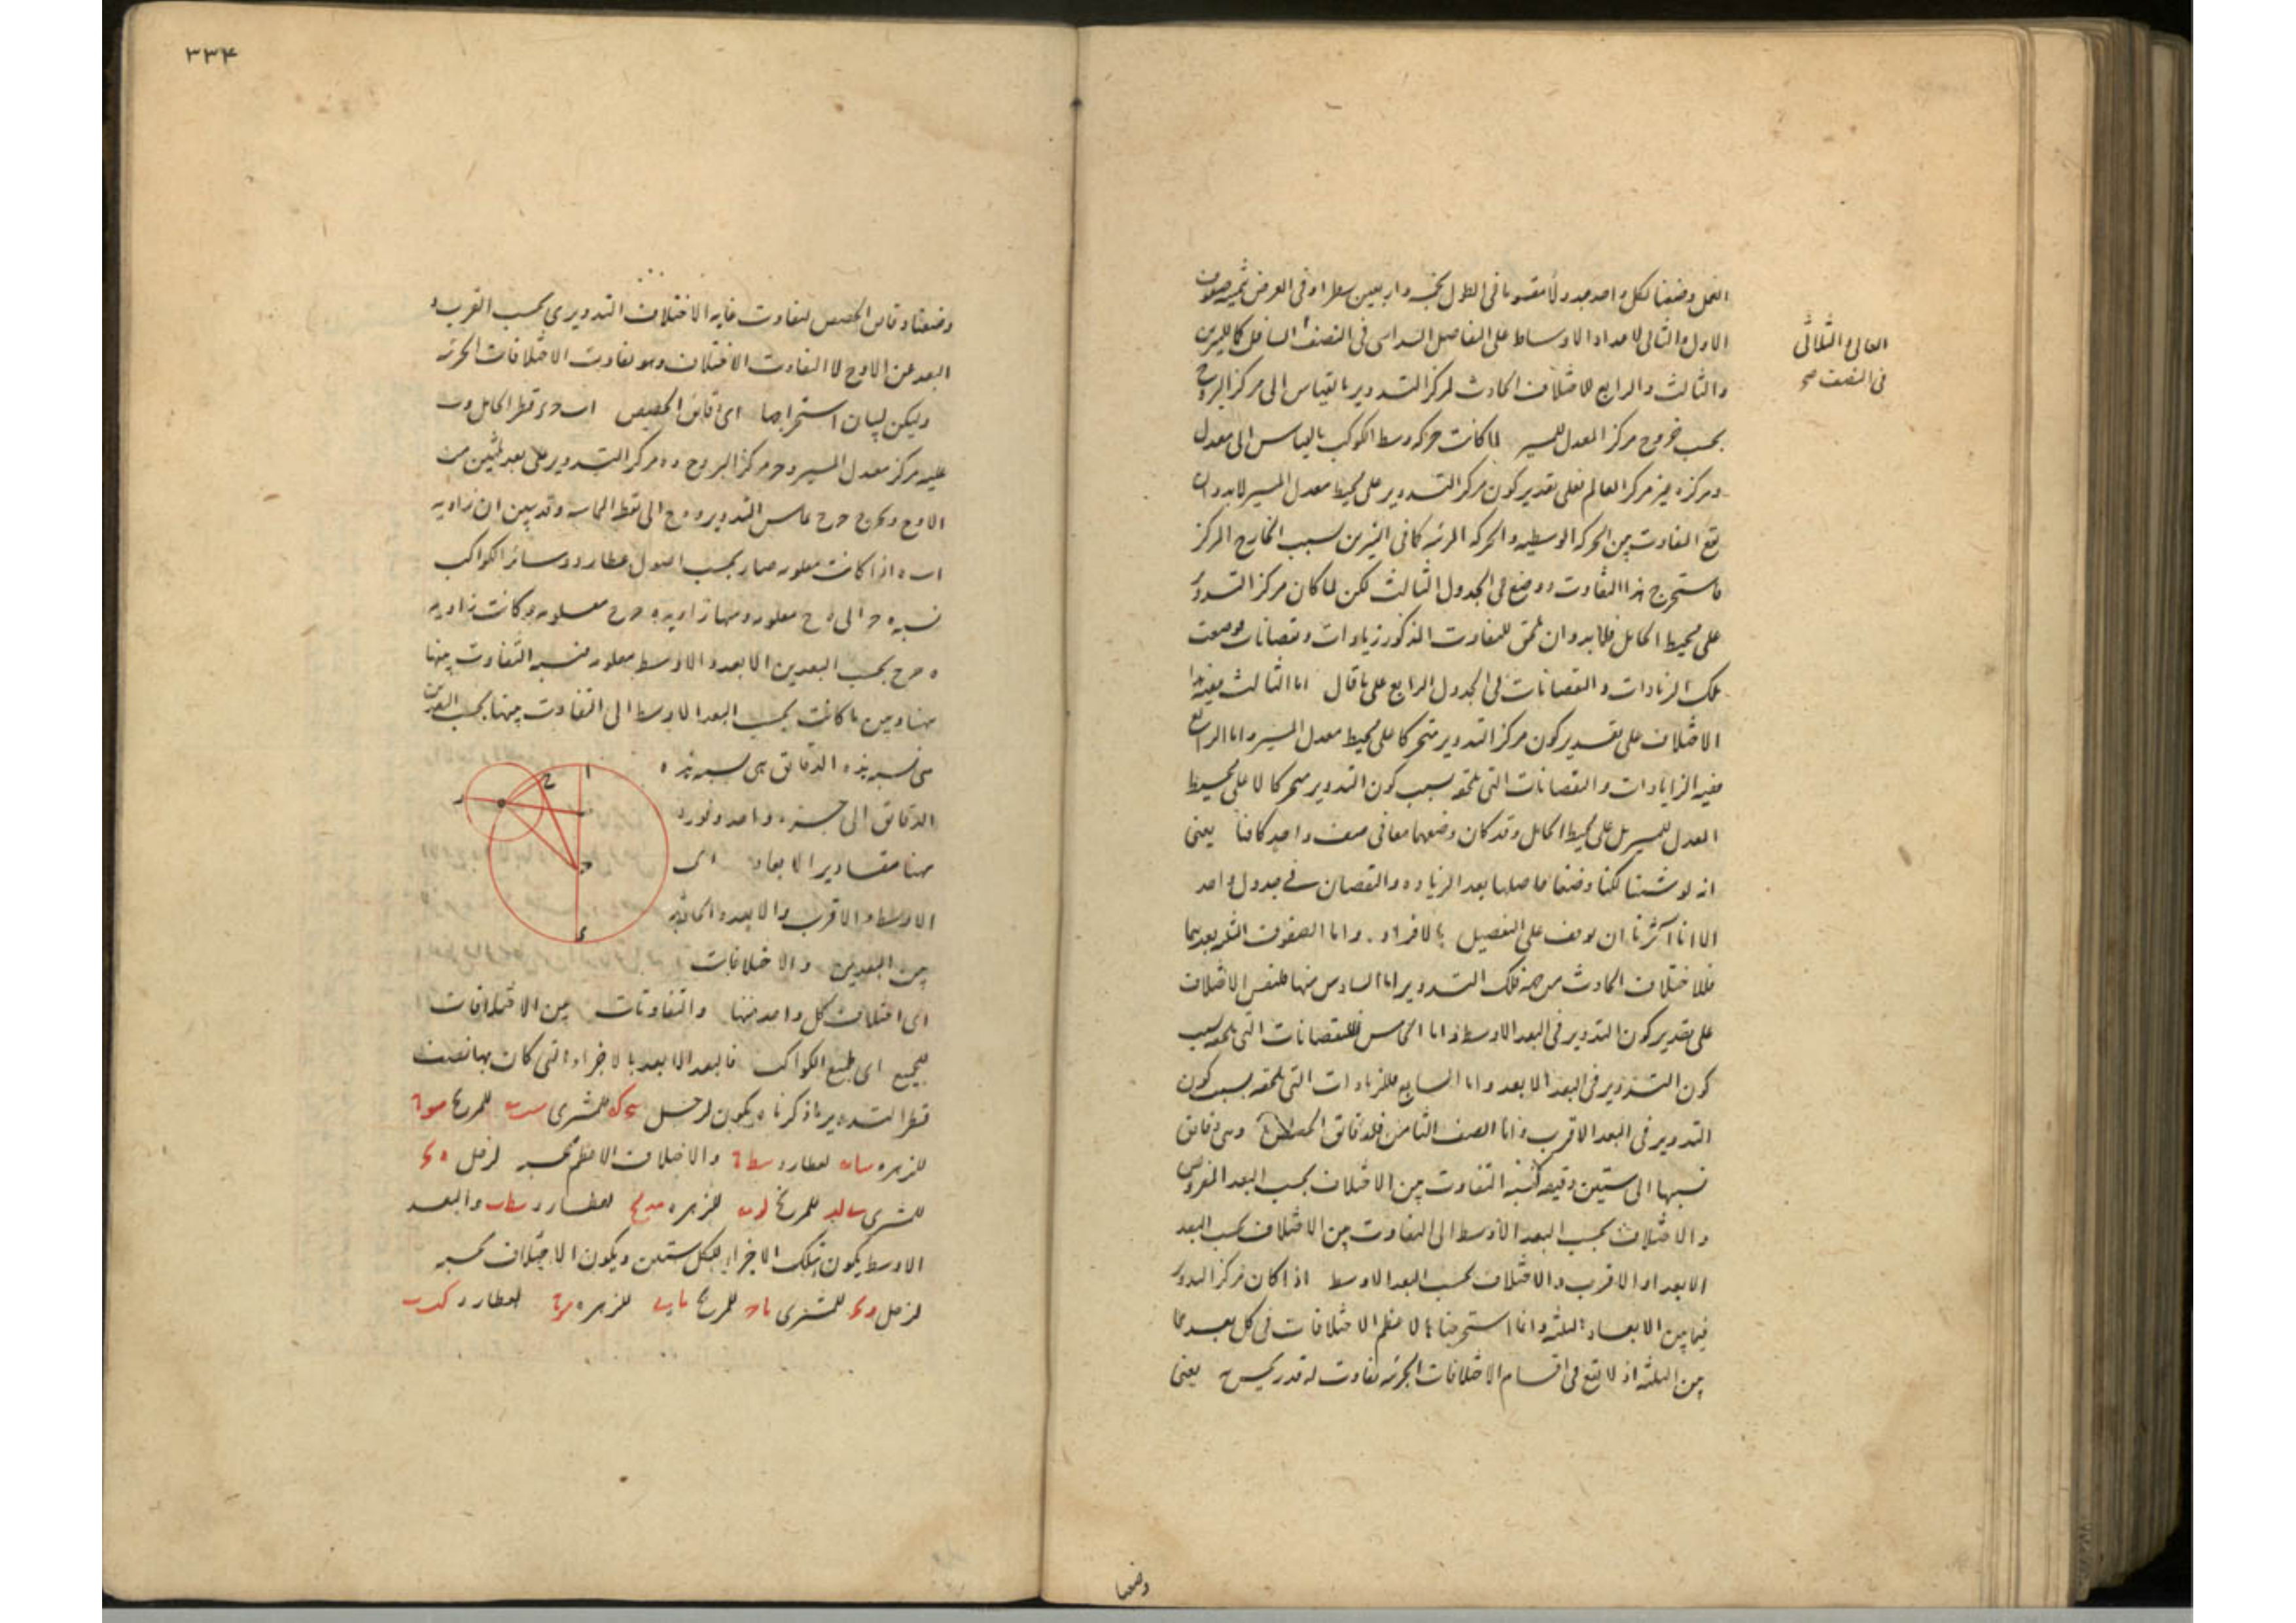 العمل وضعنا لكل واحد جدولا مقسوما فى الطول بخمسة واربعين سطرا وفى العرض بثمنية صفوف
الاول والثانى لاعداد الاوساط على التفاضل السداسى فى النصف السافل كالنيرين
العالى والثلاثى
فى النصف صح
والثالث والرابع للاختلاف الحادث لمركز التدوير بالقياس الى مركز البروج
بحسب خروج مركز المعدل للمسير لما كانت حركة وسط الكوكب بالقياس الى معدل
ومركزه غير مركز العالم فعلى تقدير كون مركز التدوير على محيط معدل المسير لابد وان
يقع التفاوت بين الحركة الوسطية والحركة المرئية كما فى النيرين بسبب الخارج المركز
فاستخرج هذا التفاوت ووضع فى الجدول الثالث لكن لما كان مركز التدوير
على محيط الحامل فلابد وان يلحق للتفاوت المذكور زيادات ونقصانات فوضعت
تلك الزيادات والنقصانات فى الجدول الرابع على ما قال اما الثالث ففيه هذا
الاختلاف على تقدير كون مركز التدوير متحركا على محيط معدل المسير واما الرابع
ففيه الزيادات والنقصانات التى تلحقه بسبب كون التدوير متحركا لا على محيط
المعدل للمسير بل على محيط الحامل وقد كان وضعهما معا فى صف واحد كافيا يعنى
انه لو شئنا لكنا وضعنا حاصلها بعد الزيادة والنقصان فى جدول واحد
الا انا آثرنا ان نوقف على التفصيل بالافراد واما الصفوف الثلثة بعدهما
فللاختلاف الحادث من جهة فلك التدوير اما السادس منها فلنفس الاختلاف
على تقدير كون التدوير فى البعد الاوسط واما الخامس فللنقصانات التى تلحقه بسبب
كون التدوير فى البعد الابعد واما السابع فللزيادات التى تلحقه بسبب كون
التدوير فى البعد الاقرب واما الصف الثامن فلدقائق الحصص وهى دقائق
نسبتها الى ستين دقيقة كنسبة التفاوت بين الاختلاف بحسب البعد المفروض
والاختلاف بحسب البعد الاوسط الى التفاوت بين الاختلاف بحسب البعد
الابعد او الاقرب والاختلاف بحسب البعد الاوسط اذا كان مركز التدوير
فيما بين الابعاد الثلثة وانما استخرجناها لاعظم الاختلافات فى كل بعد مما
بين الثلثة اذ لا يقع فى اقسام الاختلافات الجزئية تفاوت له قدر يحس به يعنى
وضعنا
٣٣۴
وضعنا دقائق الحصص لتفاوت غاية الاختلاف التدويرى بحسب القرب و
البعد من الاوج لا التفاوت الاختلاف وهو تفاوت الاختلافات الجزئية
وليكن لبيان استخراجها اى دقائق الحصص ا ب ح د قطر الحامل و ب
عليه مركز معدل المسير و ح مركز البروج و ه مركز التدوير على بعد ثلثين من
الاوج ونخرج ح ح يماس التدوير و ه ح الى نقطة المماسة وقد تبين ان زاوية
ا ب ه اذا كانت معلومة صار بحسب اصول عطارد وسائر الكواكب
نسبة ه ح الى ه ح معلومة ومنها زاوية ه ح ح معلومة وكانت زاوية
ه ح ح بحسب البعدين الابعد والاوسط معلومة فنسبة التفاوت بينها
ههنا وبين ما كانت بحسب البعد الاوسط الى التفاوت بينها بحسب البعدين
هى نسبة هذه الدقائق هى نسبة هذه
الدقائق الى جزء واحد ونورد
ههنا مقادير الابعاد اى
الاوسط والاقرب والابعد والكائنة
بين البعدين والاختلافات
ا
ح
ر
ه
ب
ح
د
اى اختلاف كل واحد منها والتفاوتات بين الاختلافات
للجميع اى لجميع الكواكب فالبعد الابعد بالاجزاء التى كان بها نصف
قطر التدوير ما ذكرناه يكون لزحل للمشترى للمريخ
للزهرة لعطارد والاختلاف الاعظم بحسبه لزحل
للمشترى للمريخ للزهرة لعطارد والبعد
الاوسط يكون بتلك الاجزاء للكل ستين ويكون الاختلاف بحسبه
لزحل للمشترى للمريخ للزهرة لعطارد